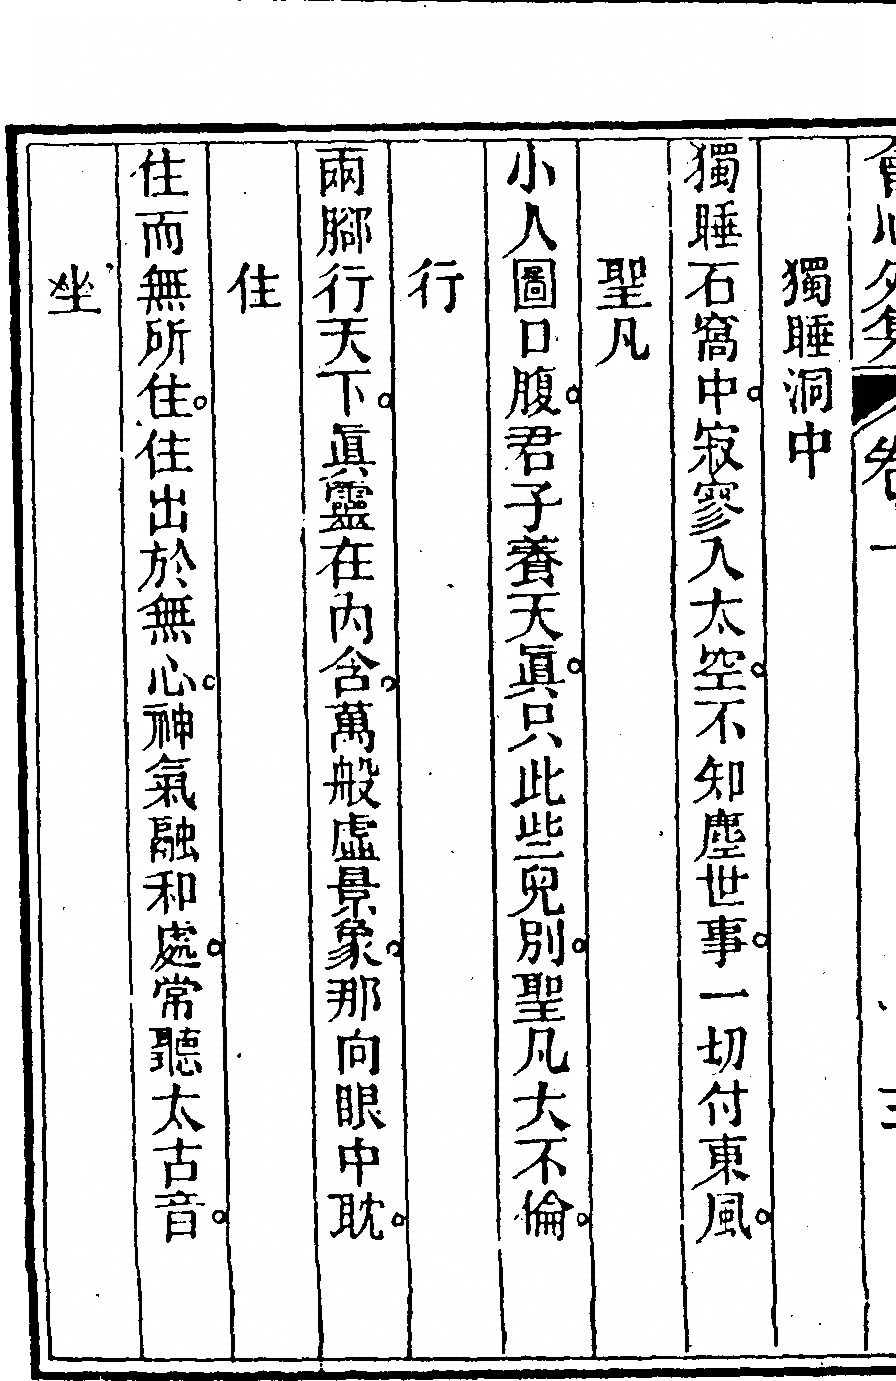 會心外集 卷一 三
獨睡洞中
獨睡石窩中。寂寥入太空。不知塵世事。一切付東風。
聖凡
小人圖口腹。君子養天眞。只此些兒別。聖凡大不倫。
行
兩腳行天下。眞靈在內含。萬般虛景象。那向眼中耽。
住
住而無所住。住出於無心。神氣融和處。常聽太古音。
坐